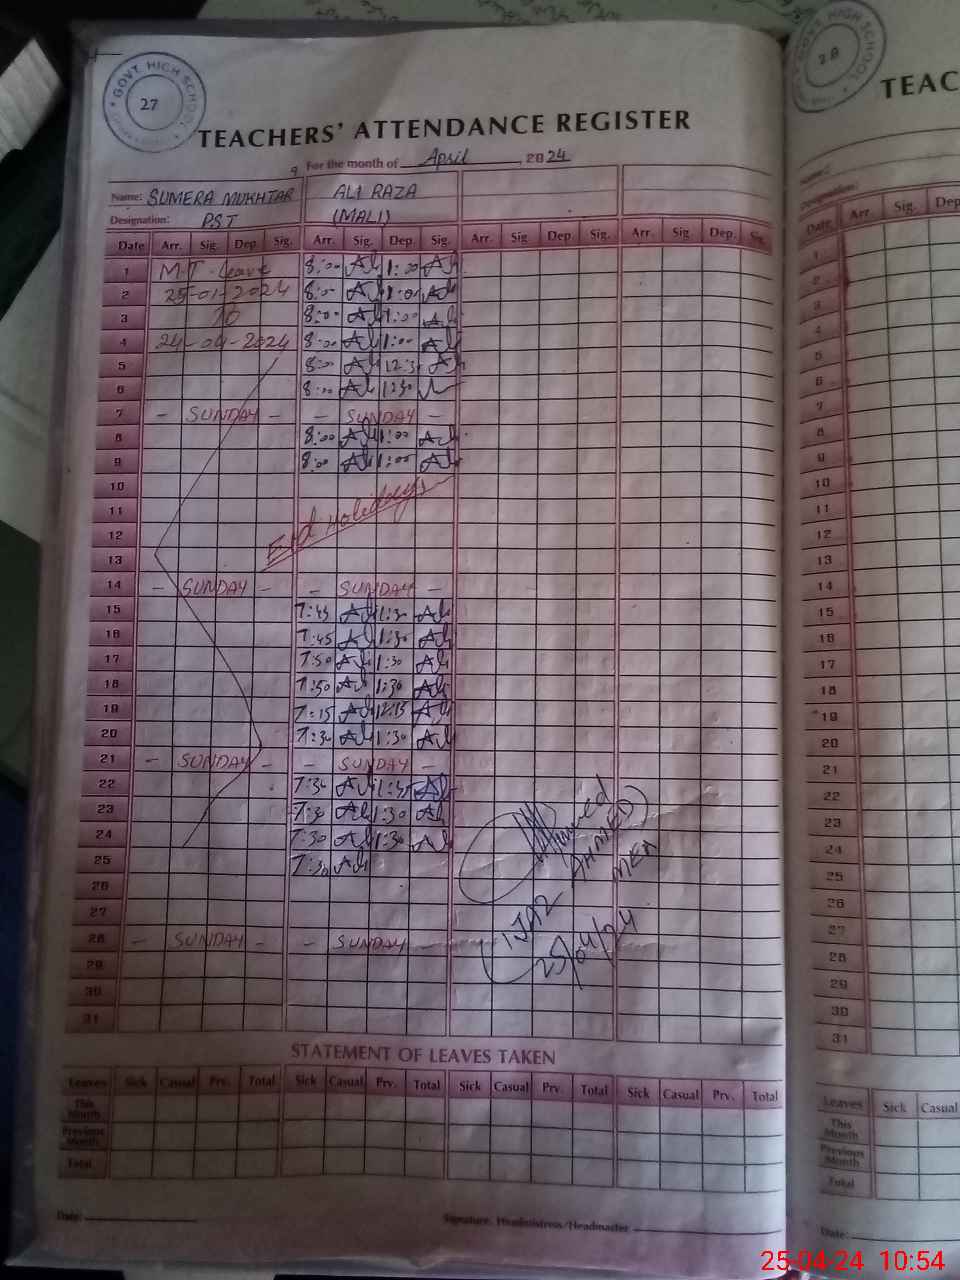 GOVT. HIGH SCHOOL
27
28
TEACHERS' ATTENDANCE REGISTER
TEAC
9 For the month of April, 2024
Name: SUMERA MUKHTAR ALI RAZA
Designation: P.S.T (MALI)
Designation:
Date Arr. Sig. Dep Sig. Arr. Sig. Dep. Sig. Arr. Sig Dep. Sig. Arr. Sig. Dep. Sig.
Date Arr. Sig. Dep
1 M.T. Leave 8:00 Ali 1:00 Ali
2 25-01-2024 8:00 Ali 1:00 Ali
3 TO 8:00 Ali 1:00 Ali
4 24-04-2024 8:00 Ali 1:00 Ali
5 8:00 Ali 12:30 Ali
6 8:00 Ali 12:30
7 - SUNDAY - - SUNDAY -
8 8:00 Ali 1:00 Ali
9 8:00 Ali 1:00 Ali
10
11 Eid Holidays
12
13
14 - SUNDAY - - SUNDAY -
15 7:45 Ali 1:30 Ali
16 7:45 Ali 1:30 Ali
17 7:50 Ali 1:30 Ali
18 7:50 Ali 1:30 Ali
19 7:15 Ali 12:15 Ali
20 7:30 Ali 1:30 Ali
21 - SUNDAY - - SUNDAY -
22 7:30 Ali Ali
23 7:30 Ali 1:30 Ali
24 7:30 Ali 1:30 Ali
25 7:30 Ali
26
27
28 - SUNDAY - - SUNDAY -
29
30
31
(IJAZ AHMED)
MEA
25/04/24
STATEMENT OF LEAVES TAKEN
Leaves Sick Casual Prv. Total Sick Casual Prv. Total Sick Casual Prv. Total Sick Casual Prv. Total
This Month
Previous Month
Total
Date: Signature. Headmistress/Headmaster
1
2
3
4
5
6
7
8
9
10
11
12
13
14
15
16
17
18
19
20
21
22
23
24
25
26
27
28
29
30
31
Leaves Sick Casual
This Month
Previous Month
Total
Date:
25-04-24 10:54